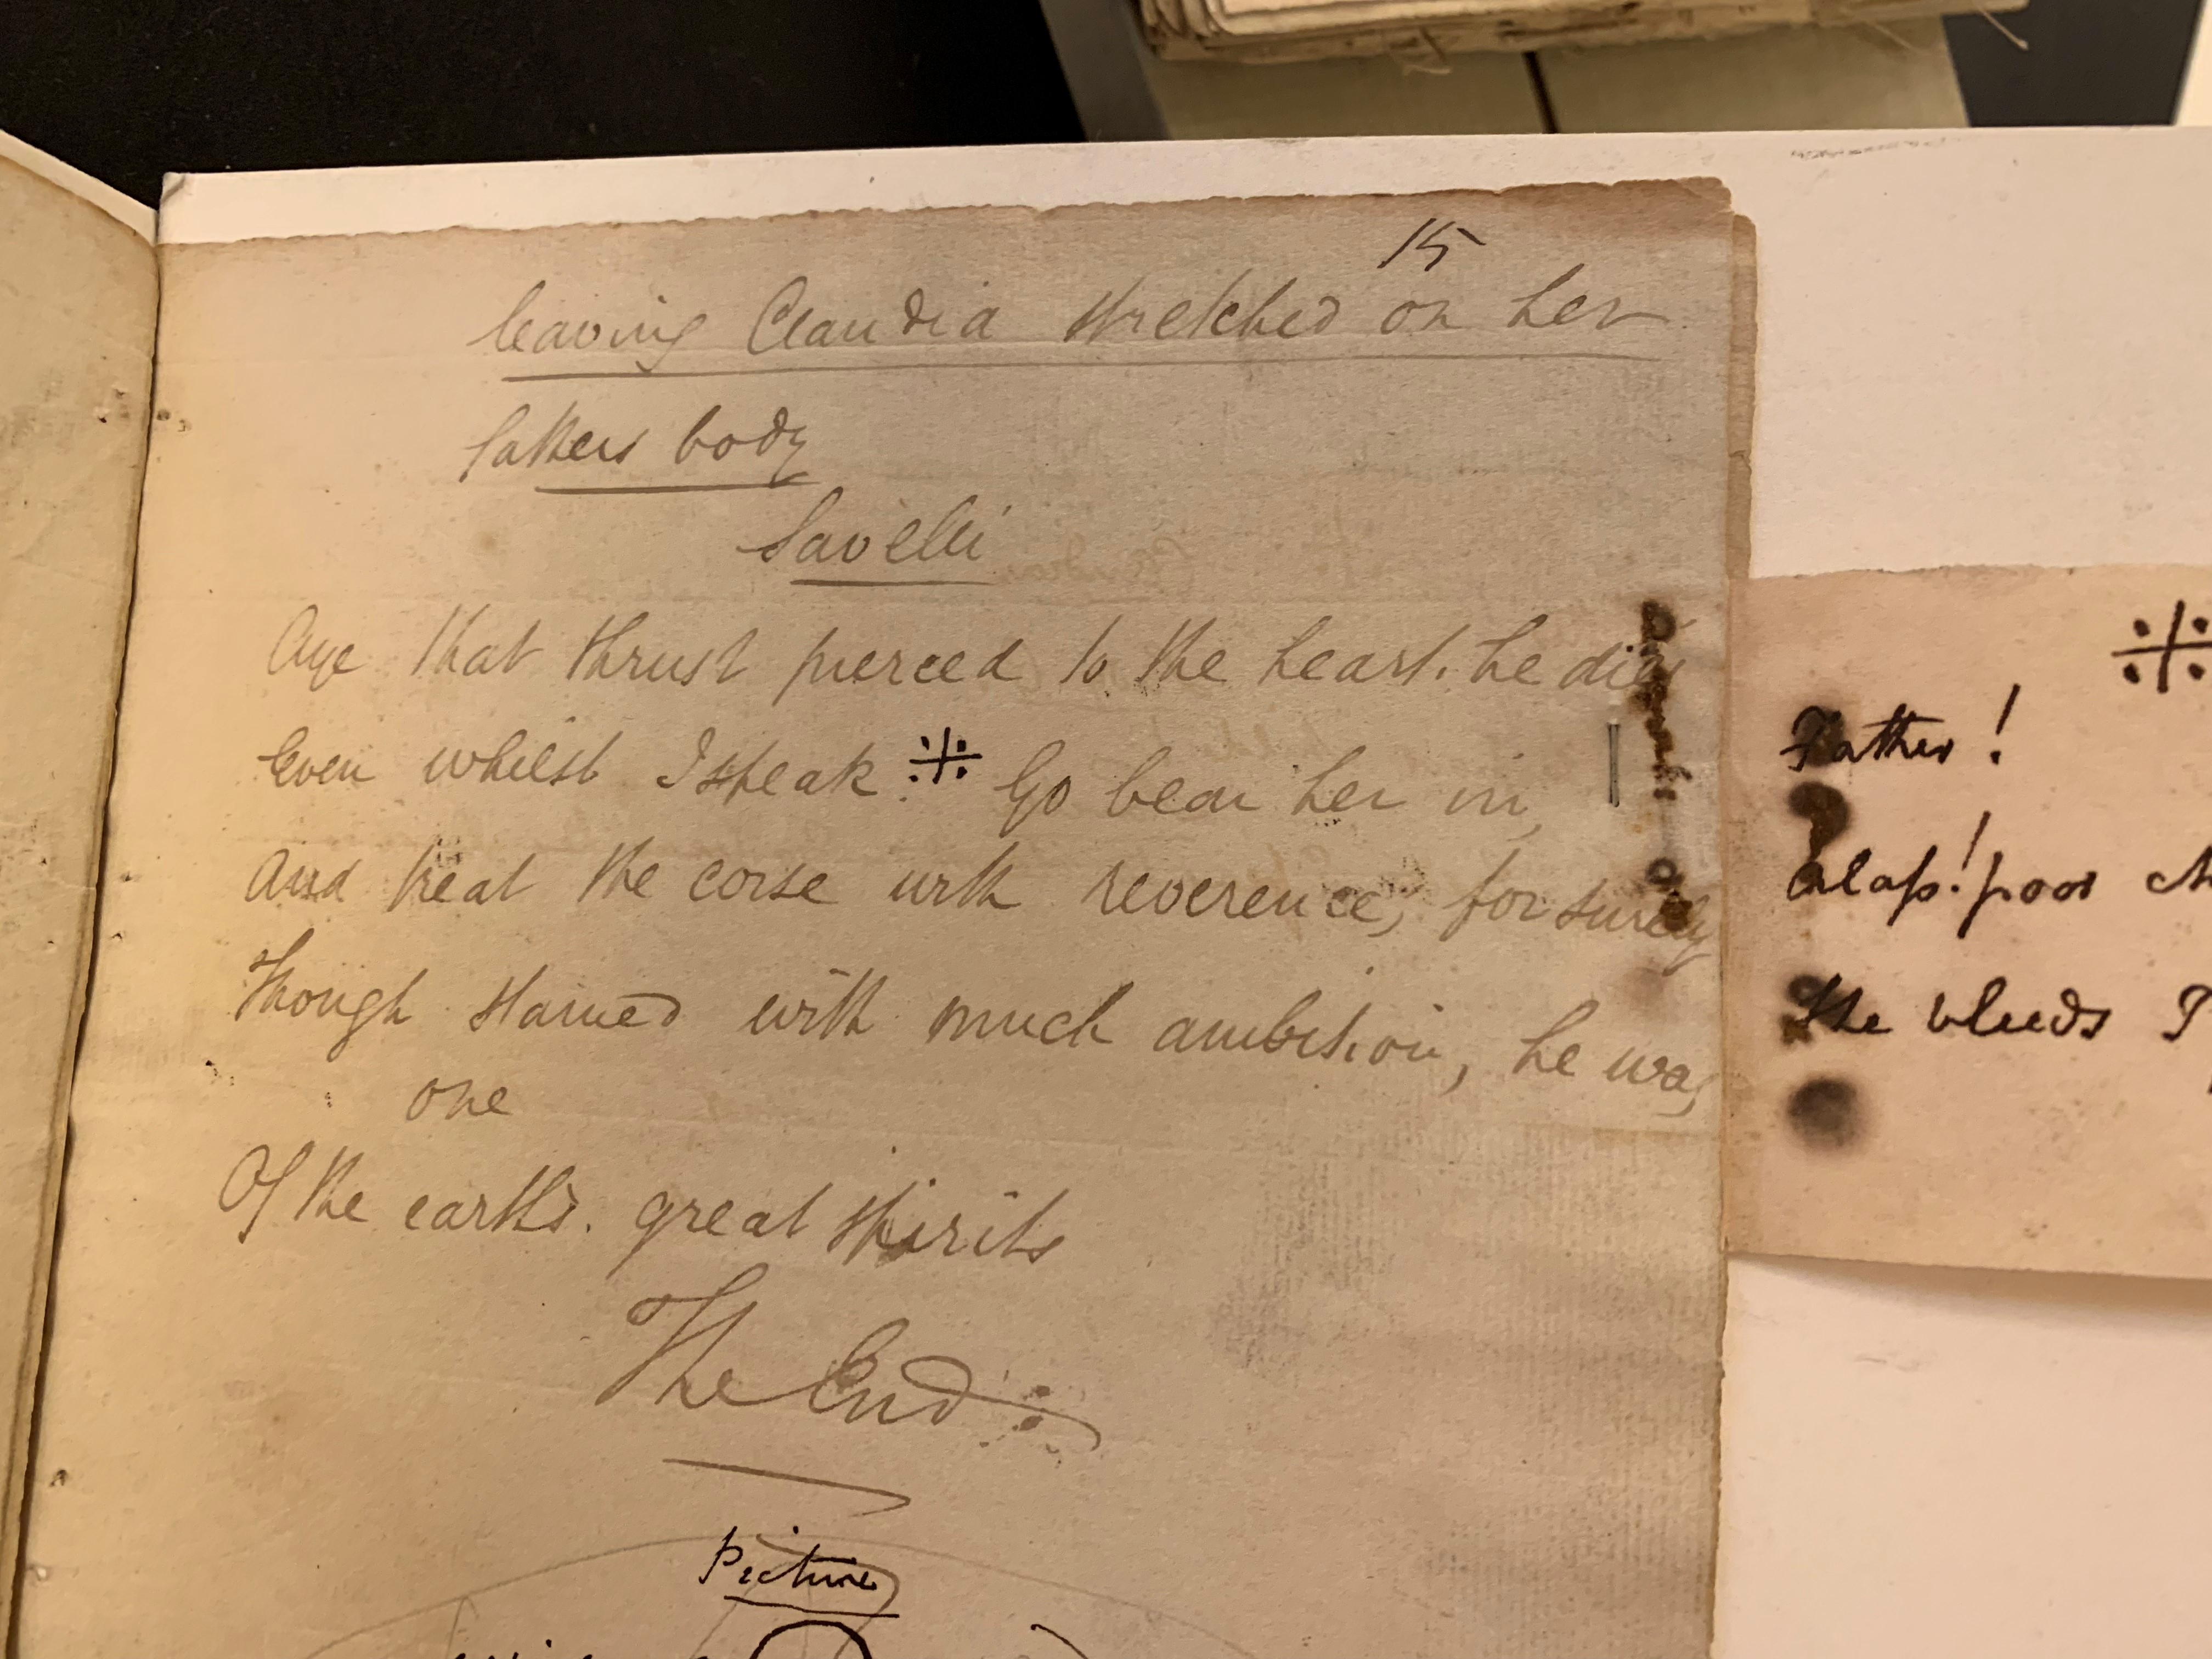 15
leaving Claudia stretched on her
fathers body
Savelli
Aye that thrust pierced to the heart. he dies
Even whilst I speak ※ Go bear her in,
And treat the corse with reverence, for surely
Though stained with much ambition, he was
one
Of the earth's great spirits
The End
Picture
※
Father!
Alas! poor
She bleeds